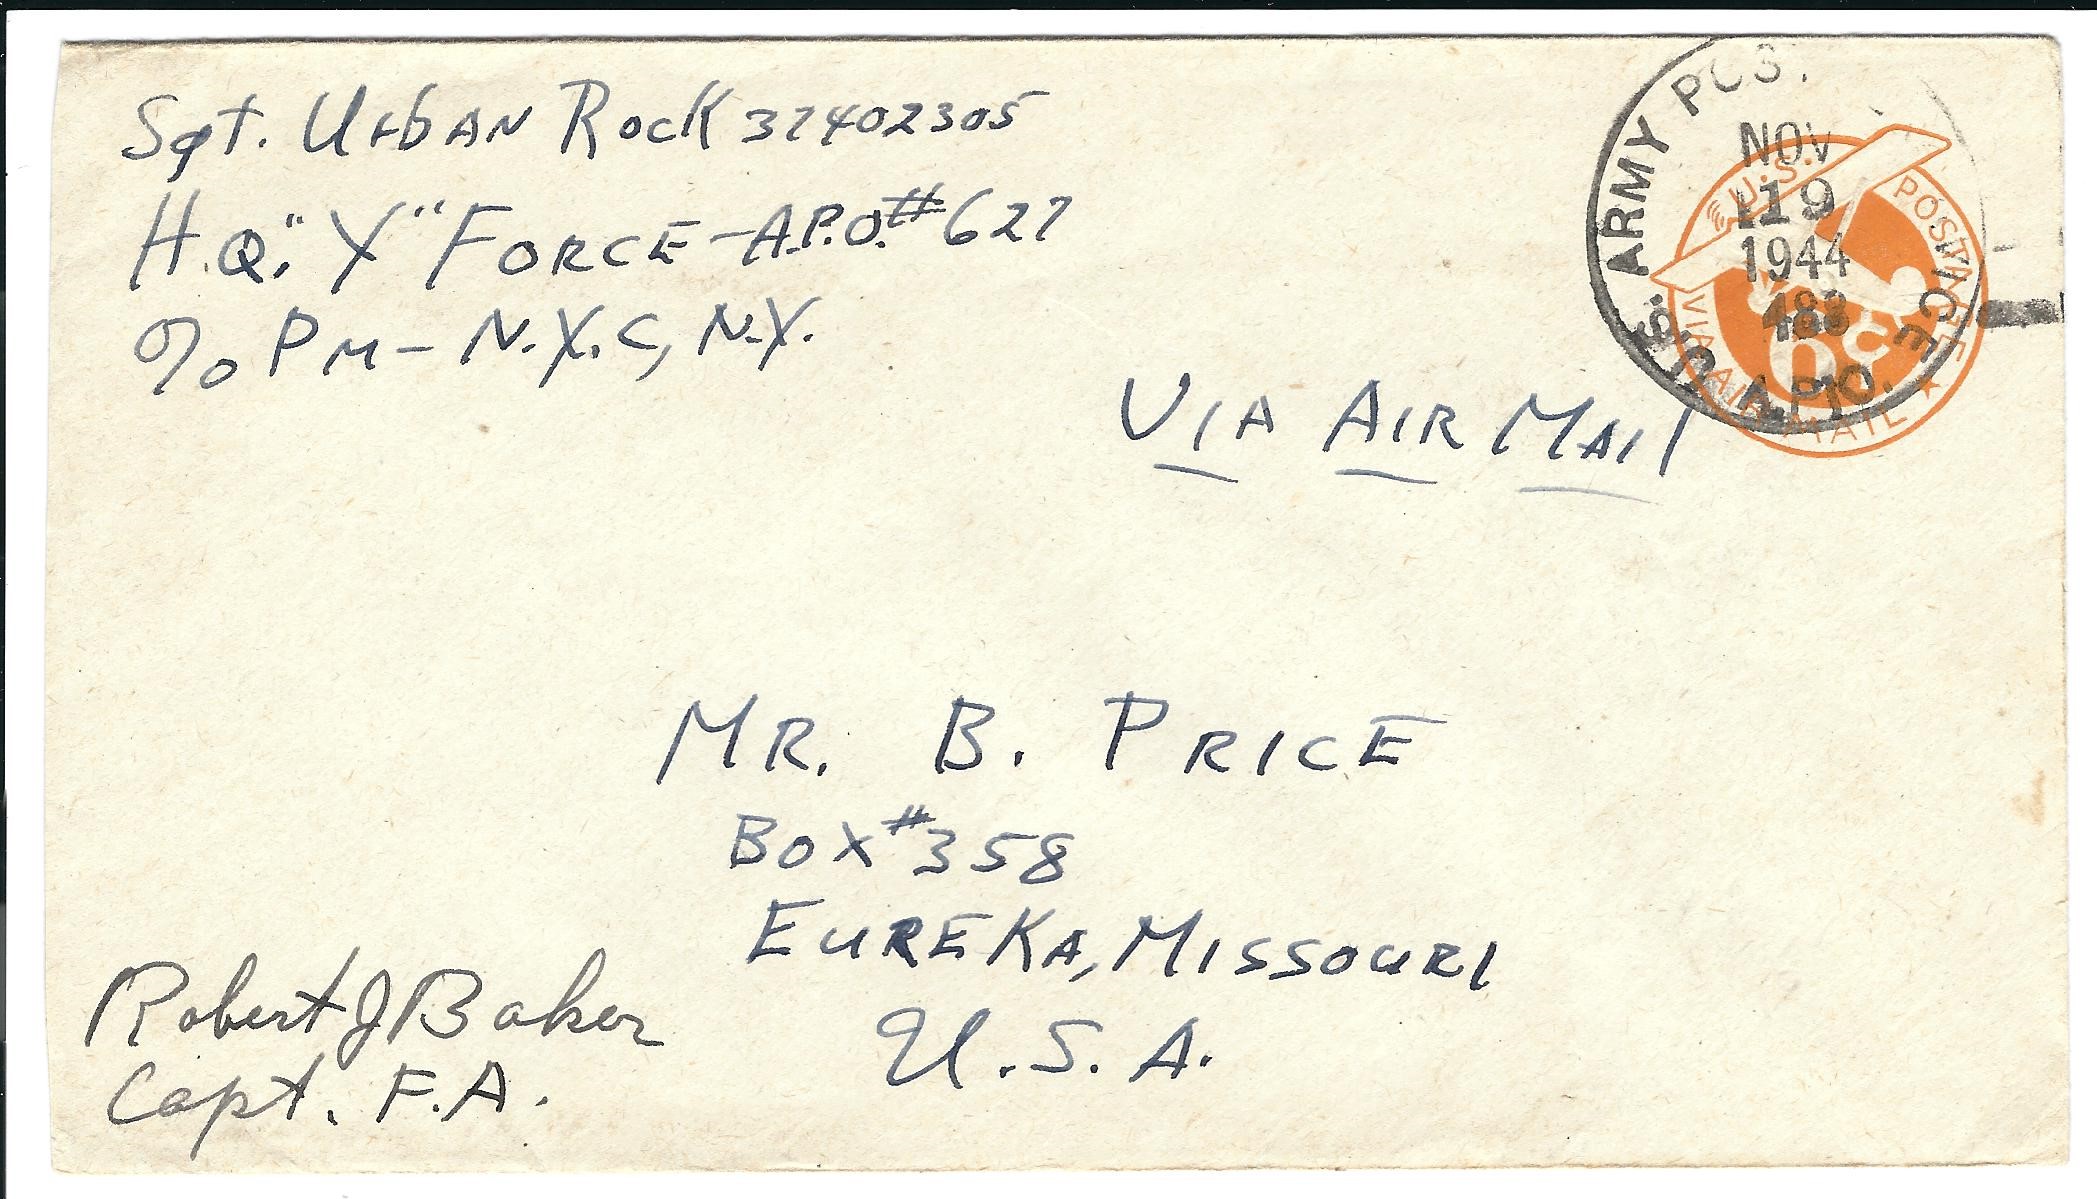 Sgt. Urban Rock 37402305
H.Q. "Y" FORCE - A.P.O. # 627
c/o PM - N.Y.C, N.Y.
U.S. ARMY POS. ICE
NOV
19
1944
A.P.O.
U.S. POSTAGE
6c
VIA AIR MAIL
VIA AIR MAIL
MR. B. PRICE
BOX # 358
EUREKA, MISSOURI
U.S.A.
Robert J Baker
Capt. F.A.